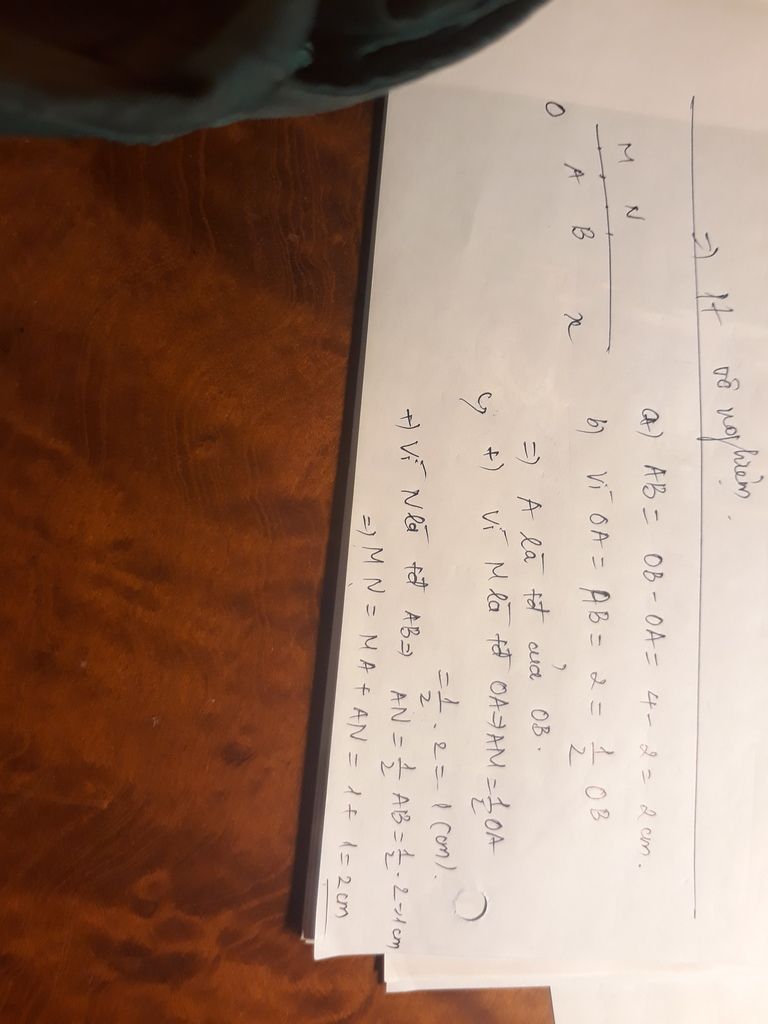 =) Pt vô nghiệm.
M N
O A B x
a) AB = OB - OA = 4 - 2 = 2 cm.
b) Vì OA = AB = 2 = 1/2 OB
=) A là tđ của OB.
c) +) Vì M là tđ OA => AM = 1/2 OA
= 1/2 . 2 = 1 (cm).
+) Vì N là tđ AB => AN = 1/2 AB = 1/2 . 2 = 1 cm
=) MN = MA + AN = 1 + 1 = 2 cm